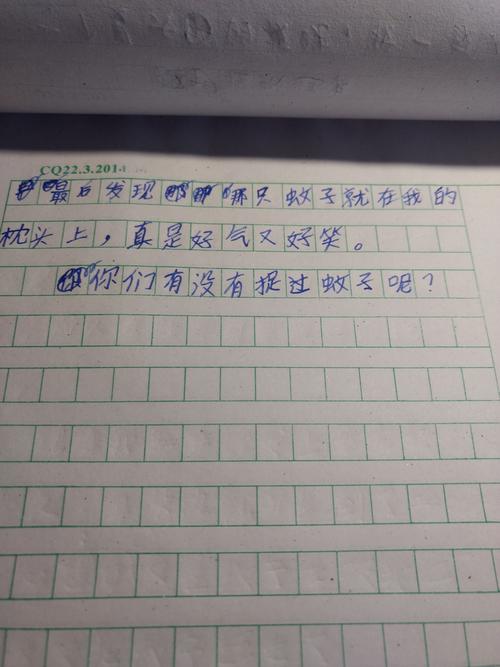 CQ22.3.201
最后发现那只蚊子就在我的
枕头上，真是好气又好笑。
你们有没有捉过蚊子呢？